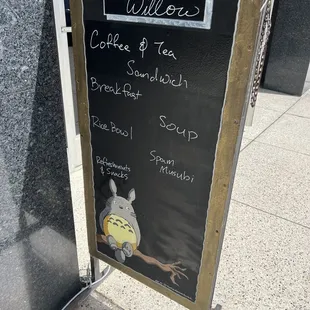 Willow
Coffee & Tea
Sandwich
Breakfast
Rice Bowl
Soup
Refreshments
& Snacks
Spam
Musubi